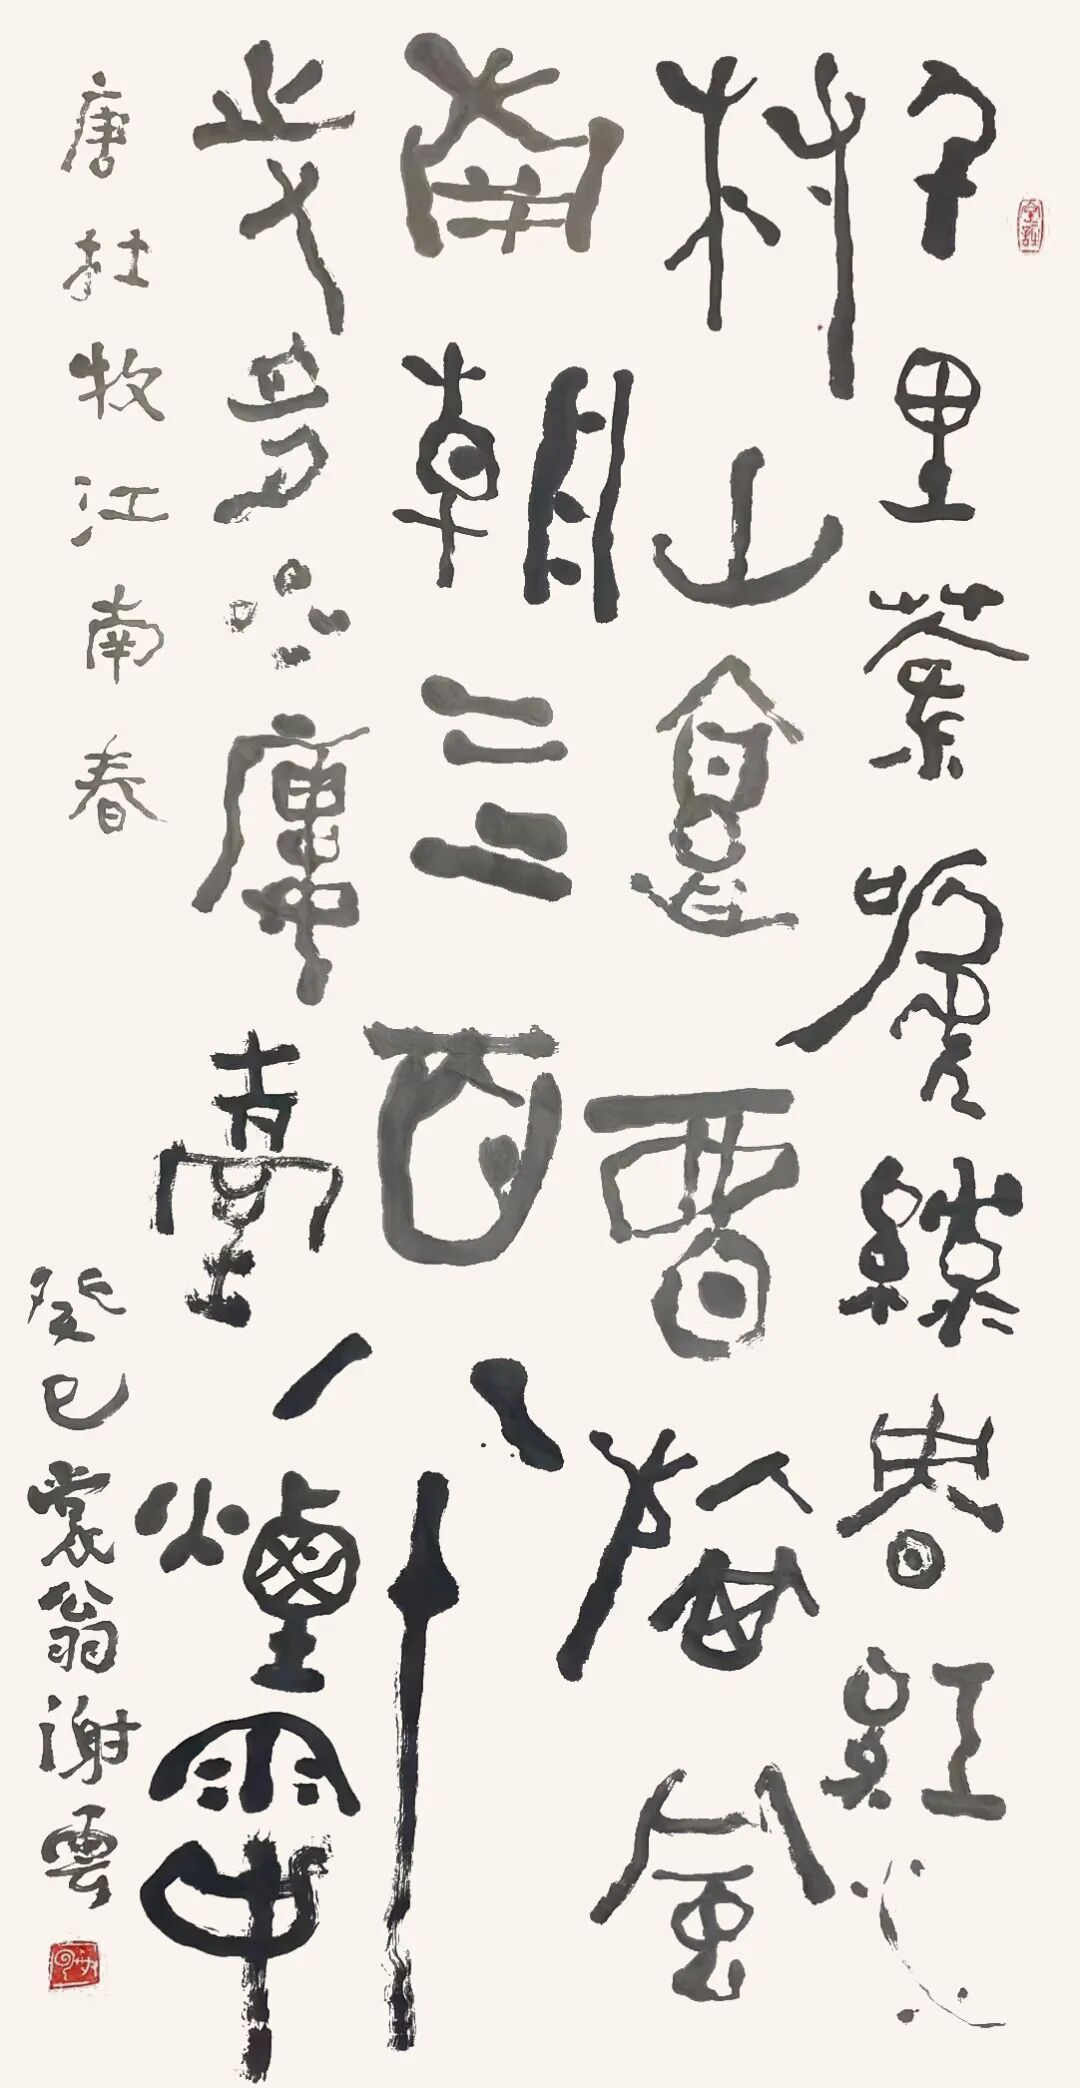 千里鶯嗁綠映紅水
村山郭酒旗風
南朝亖百八十
寺多少樓臺煙雨中
唐杜牧江南春
癸巳裳翁謝雲